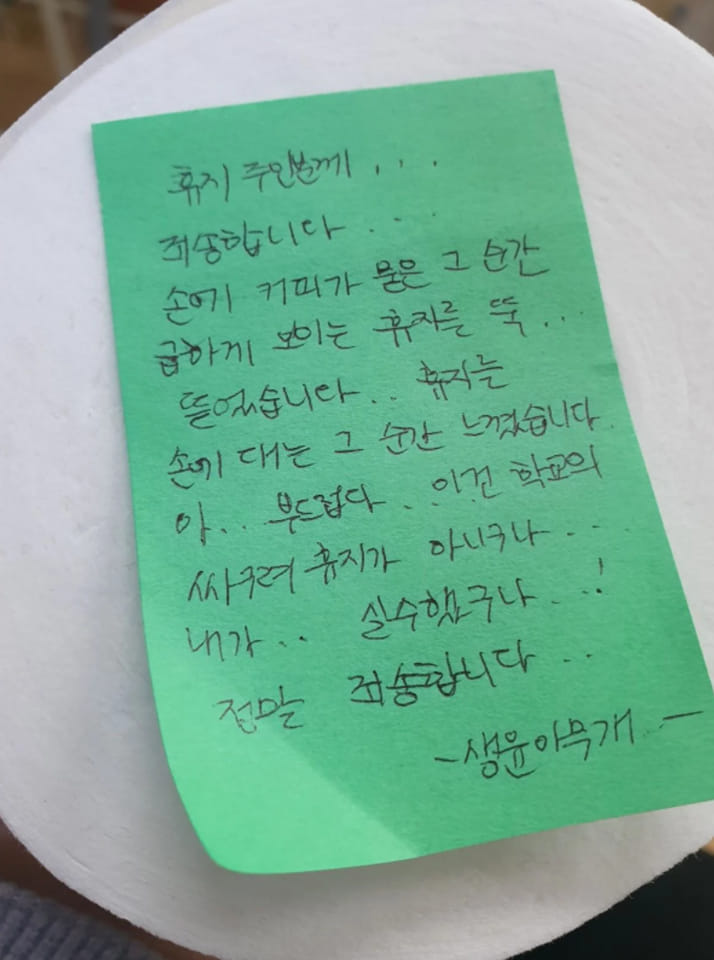 휴지 주인분께 . . .
죄송합니다 . . .
손에 커피가 묻은 그 순간
급하게 보이는 휴지를 뚝 . . .
뜯었습니다 . . 휴지를
손에 대는 그 순간 느꼈습니다.
아 . . . 부드럽다 . . 이건 학교의
싸구려 휴지가 아니구나 . . .
내가 . . 실수했구나 . . . !
정말 죄송합니다 . .
- 생윤아무개 . -